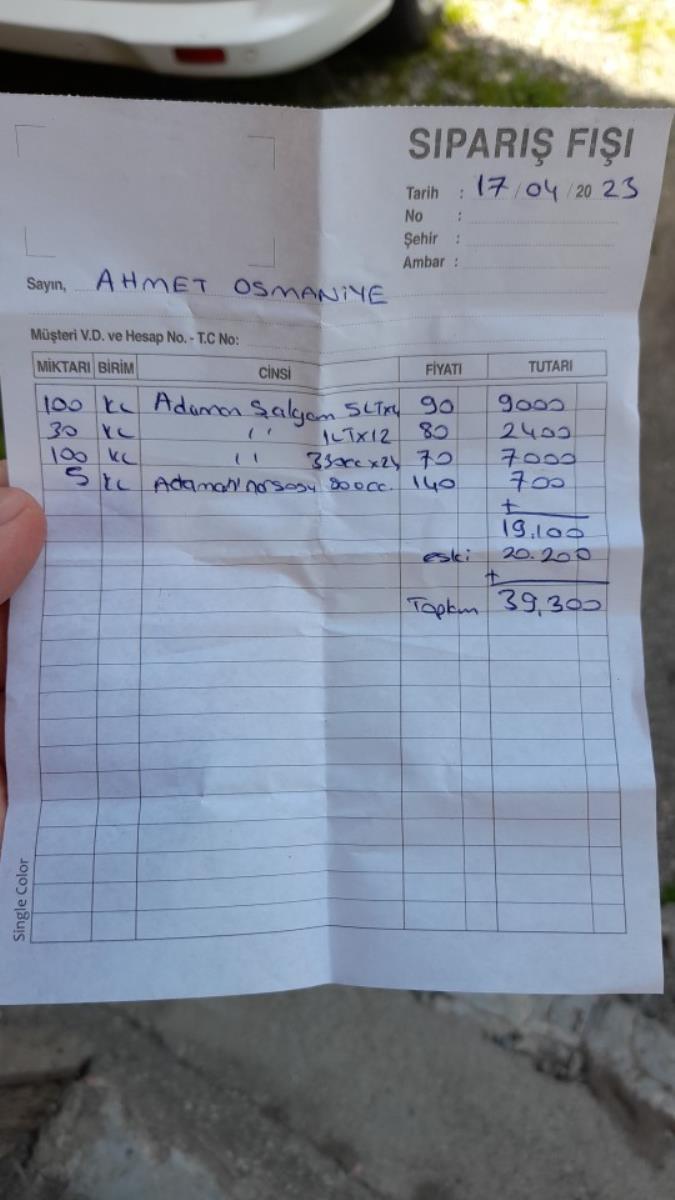 SIPARIŞ FIŞI
Tarih : 17/04/2023
No :
Şehir :
Ambar :
Sayın, AHMET OSMANİYE
Müşteri V.D. ve Hesap No. - T.C No:
MİKTARI BİRİM CİNSİ FİYATI TUTARI
100 KL Adaman Şalgam 5LTx4 90 9000
30 KL '' 1LTx12 80 2400
100 KL '' 330cc x24 70 7000
5 KL Adaman nar sosu 800cc. 140 700
+
19.100
eski 20.200
+
Toplam 39,300
Single Color